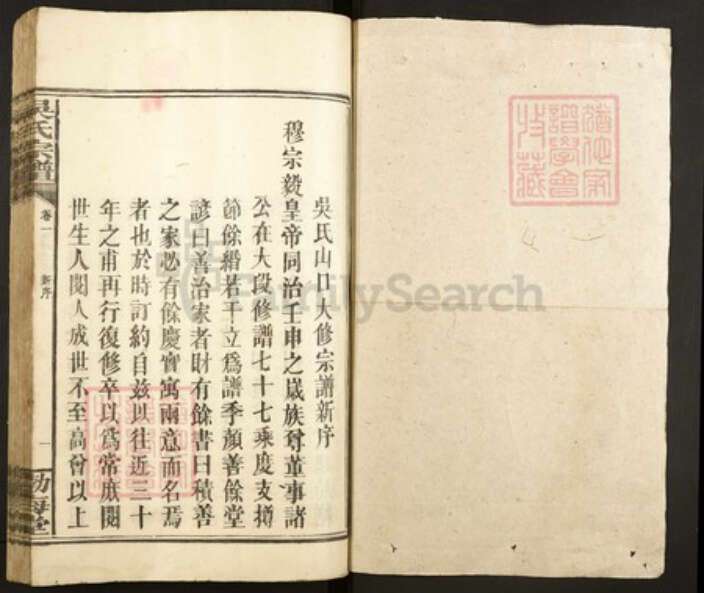 吳氏山口大修宗譜新序
穆宗毅皇帝同治壬申之歲族尊董事諸
公在大段修譜七十七乘慶支撙
節餘緡若干立爲譜季顏善餘堂
諺曰善治家者財有餘書曰積善
之家必有餘慶實寓兩意而名焉
者也於時訂約自茲以往近三十
年之甫再行復修卒以爲常庶閱
世生人閱人成世不至高曾以上
吳氏宗譜
卷一
新序
一
勃海堂
譜學會
收藏
FamilySearch